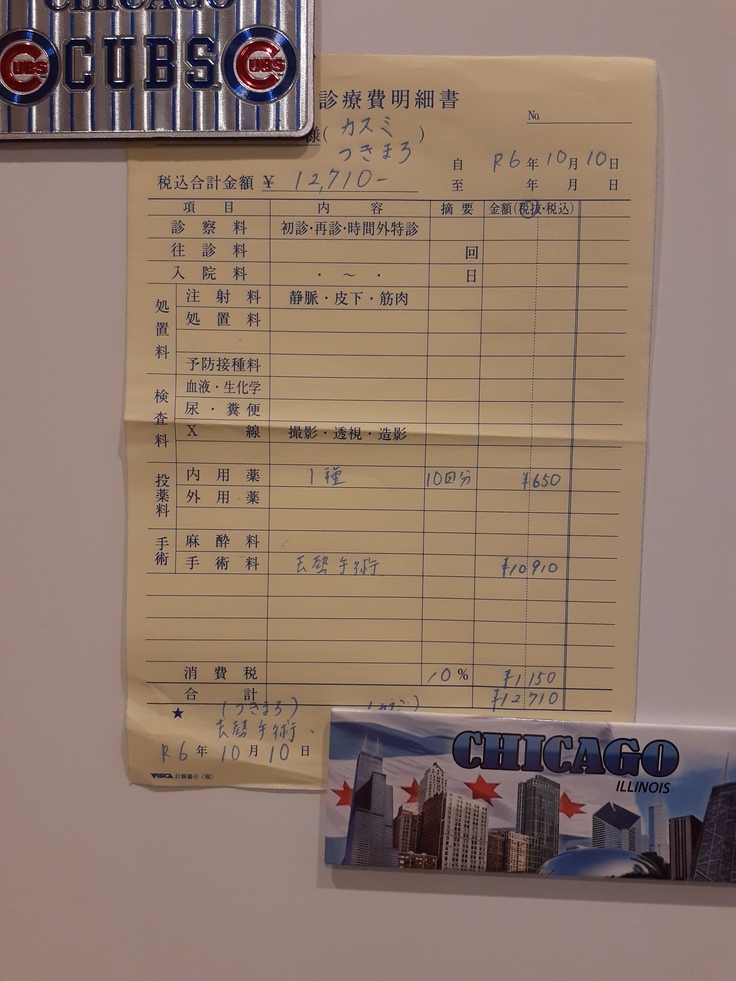 CHICAGO
CUBS CUBS CUBS
診療費明細書
No.
様( カスミ
つきまろ )
自 R6年10月10日
税込合計金額 ¥ 12,710-
至 年 月 日
項 目 内 容 摘 要 金額(税抜・税込)
診 察 料 初診・再診・時間外特診
往 診 料 回
入 院 料 ・ ~ ・ 日
処置料
注 射 料 静脈・皮下・筋肉
処 置 料
予防接種料
検査料
血液・生化学
尿・糞便
X 線 撮影・透視・造影
投薬料
内 用 薬 1種 10回分 ¥650
外 用 薬
手術
麻 酔 料
手 術 料 去勢手術 ¥10910
消 費 税 10% ¥1,150
合 計 ¥12710
★ (つきまろ)
去勢手術、
R6年10月10日
CHICAGO
ILLINOIS